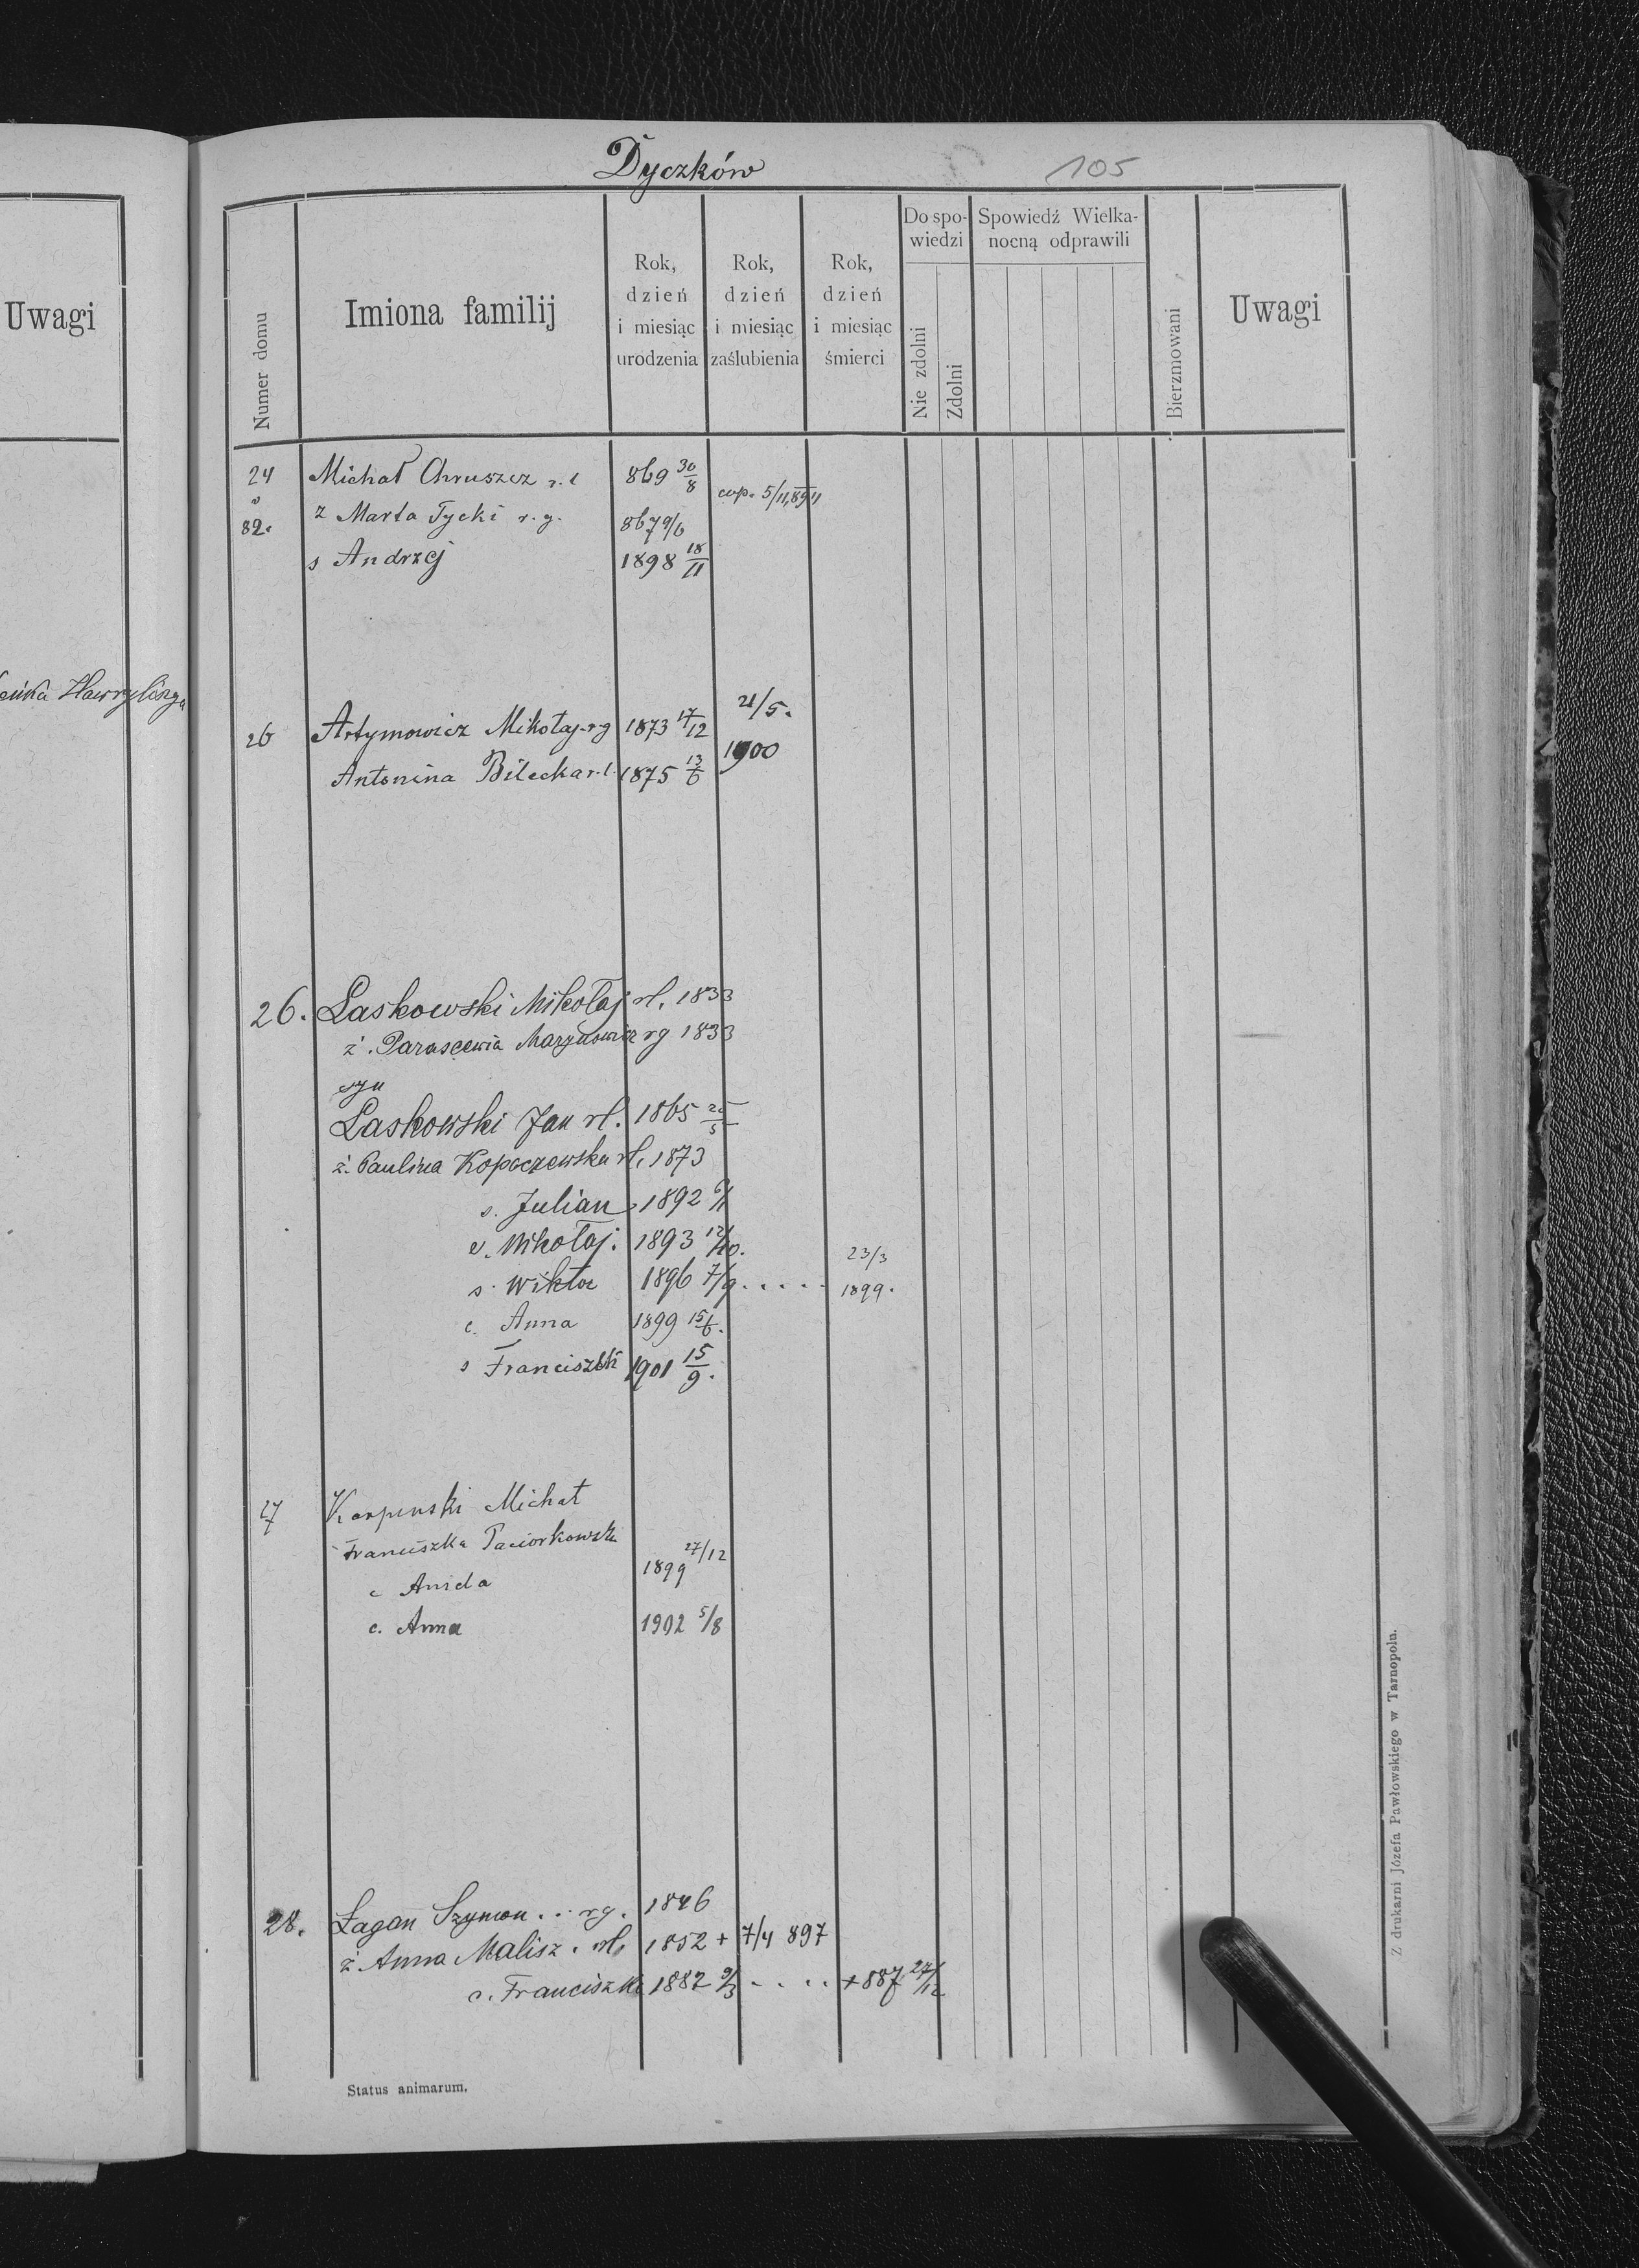 Dyczków
105
Uwagi
Numer domu
Imiona familij
Rok, dzień i miesiąc urodzenia
Rok, dzień i miesiąc zaślubienia
Rok, dzień i miesiąc śmierci
Do spo-
wiedzi
Nie zdolni
Zdolni
Spowiedź Wielka-
nocną odprawili
Bierzmowani
Uwagi
24 Michał Chruszcz r. l 869 30/8
cop. 5/11,89
82. ż Marta Tycki r. g. 867 9/6
s Andrzej 1898 18/11
26 Artymowicz Mikołaj r g 1873 17/12 21/5.
1900
Antonina Bilecka r. l. 1875 13/6
26. Laskowski Mikołaj rl. 1833
ż. Parascewia rg 1833
syn
Laskowski Jan rl. 1865 25/5
ż. Paulina Kopaczewska rl. 1873
s. Julian 1892
s. Mikołaj. 1893 12/10.
s. Wiktor 1896 7/9 . . . . . 23/3
1899.
c. Anna 1899 15/6.
s Franciszek 1901 15/9.
27 Karpinski Michał
Franciszka Paciorkowska
c Aniela 1899 27/12
c. Anna 1902 5/8
28. Łagan Szymon . . rg. 1846
ż Anna Malisz. rl. 1852 + 7/4 897
c. Franciszka 1882 9/3 . . . . +887 27/12
Status animarum.
Z drukarni Józefa Pawłowskiego w Tarnopolu.